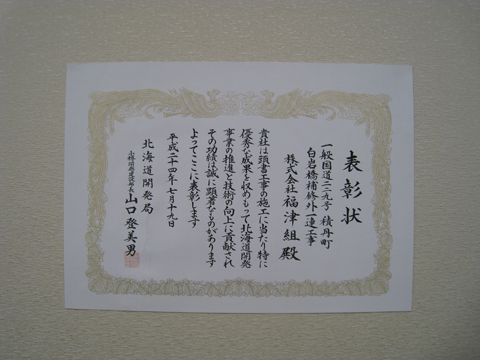 表彰状
一般国道二二九号 積丹町
白岩橋補修外一連工事
株式会社 福津組 殿
貴社は頭書工事の施工に当たり特に
優秀な成果を収めもって北海道開発
事業の推進と技術の向上に貢献され
その功績は誠に顕著なものがあります
よってここに表彰します
平成二十四年七月十九日
北海道開発局
小樽開発建設部長 山口登美男